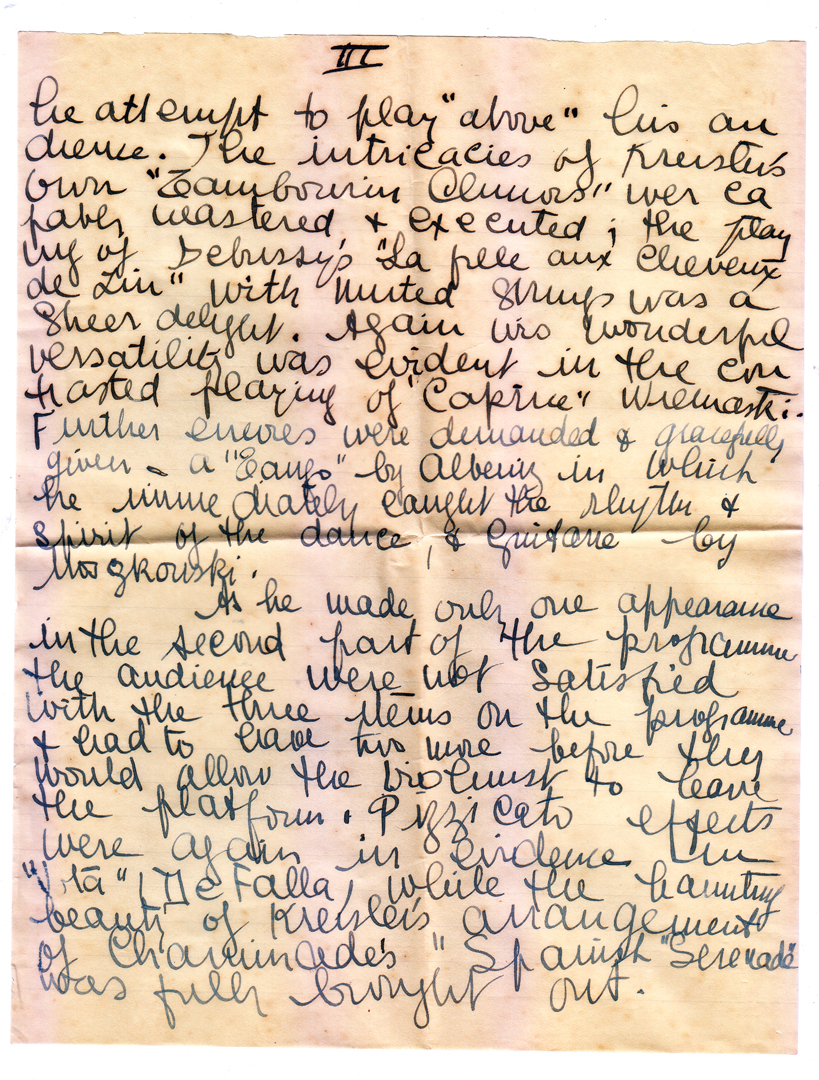 III
he attempt to play "above" his au
dience. The intricacies of Kreisler's
own "Tambourin Chinois" wer ca
pably mastered & executed; the play
ing of Debussy's "La fille aux Cheveux
de Lin" with muted strings was a
sheer delight. Again his wonderful
versatility was evident in the con
trasted playing of "Caprice" Wieniaski.
Further encores were demanded & gracefully
given - a "Tango" by Albeniz in which
he immediately caught the rhythm &
spirit of the dance, & Guitare by
Moszkowski.
As he made only one appearance
in the second part of the programme
the audience were not satisfied
with the three items on the programme
& had to have two more before they
would allow the violinist to leave
the platform. Pizzicato effects
were again in evidence in
"Jota" (De Falla) while the haunting
beauty of Kreisler's arrangement
of Chaminade's "Spanish "Serenade"
was fully brought out.